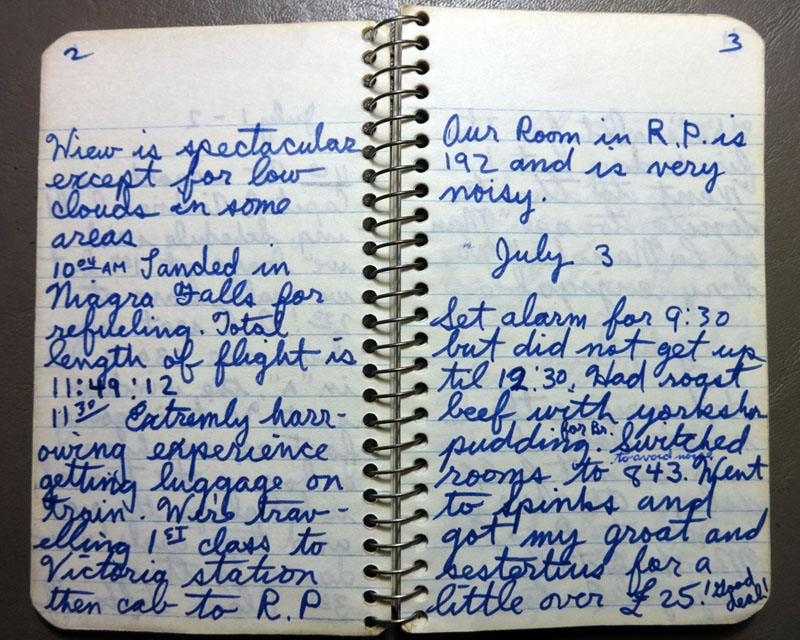 2
View is spectacular
except for low
clouds in some
areas
10 04 AM Landed in
Niagra Falls for
refueling. Total
length of flight is
11:49:12
11 30 Extremly harr-
owing experience
getting luggage on
train. We're trav-
elling 1ST class to
Victoria station
then cab to R.P
3
Our Room in R.P. is
192 and is very
noisy.
July 3
Set alarm for 9:30
but did not get up
til 12:30. Had roast
beef with yorkshir
for Br.
pudding. Switched
to avoid noise
rooms to 843. Went
to Spinks and
got my groat and
sestertius for a
little over £25. ! Good deal!